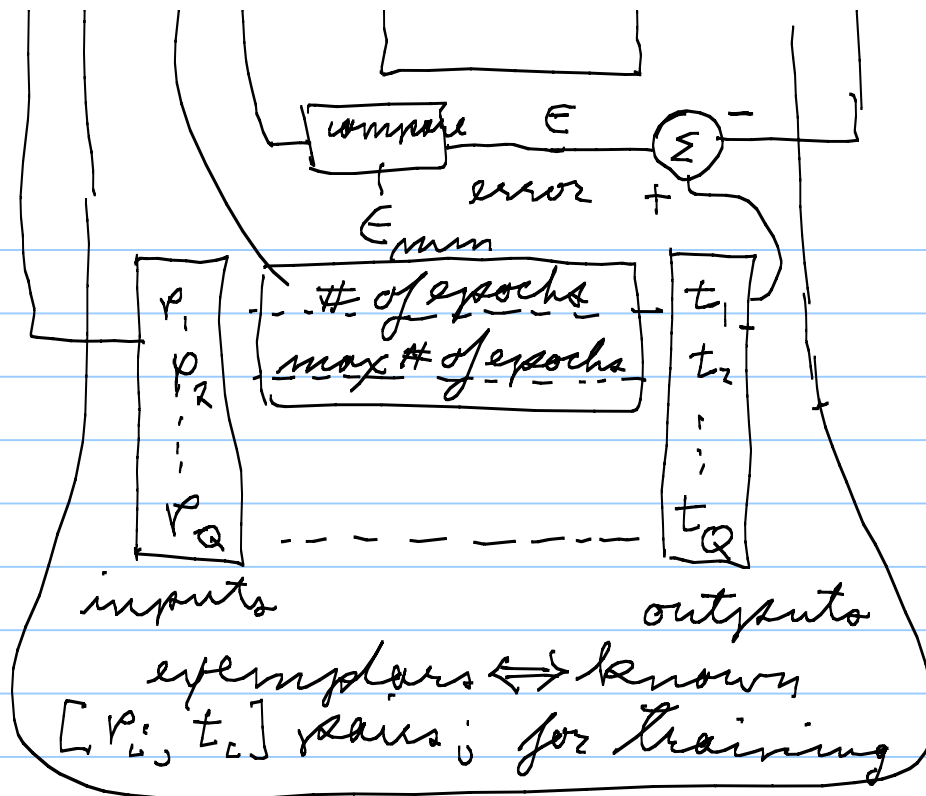 compare ϵ Σ −
error +
ϵ min
p₁ # of epochs t₁
p₂ max # of epochs t₂
p_Q t_Q
inputs outputs
exemplars ⇔ known
[pᵢ, tᵢ] pairs; for training